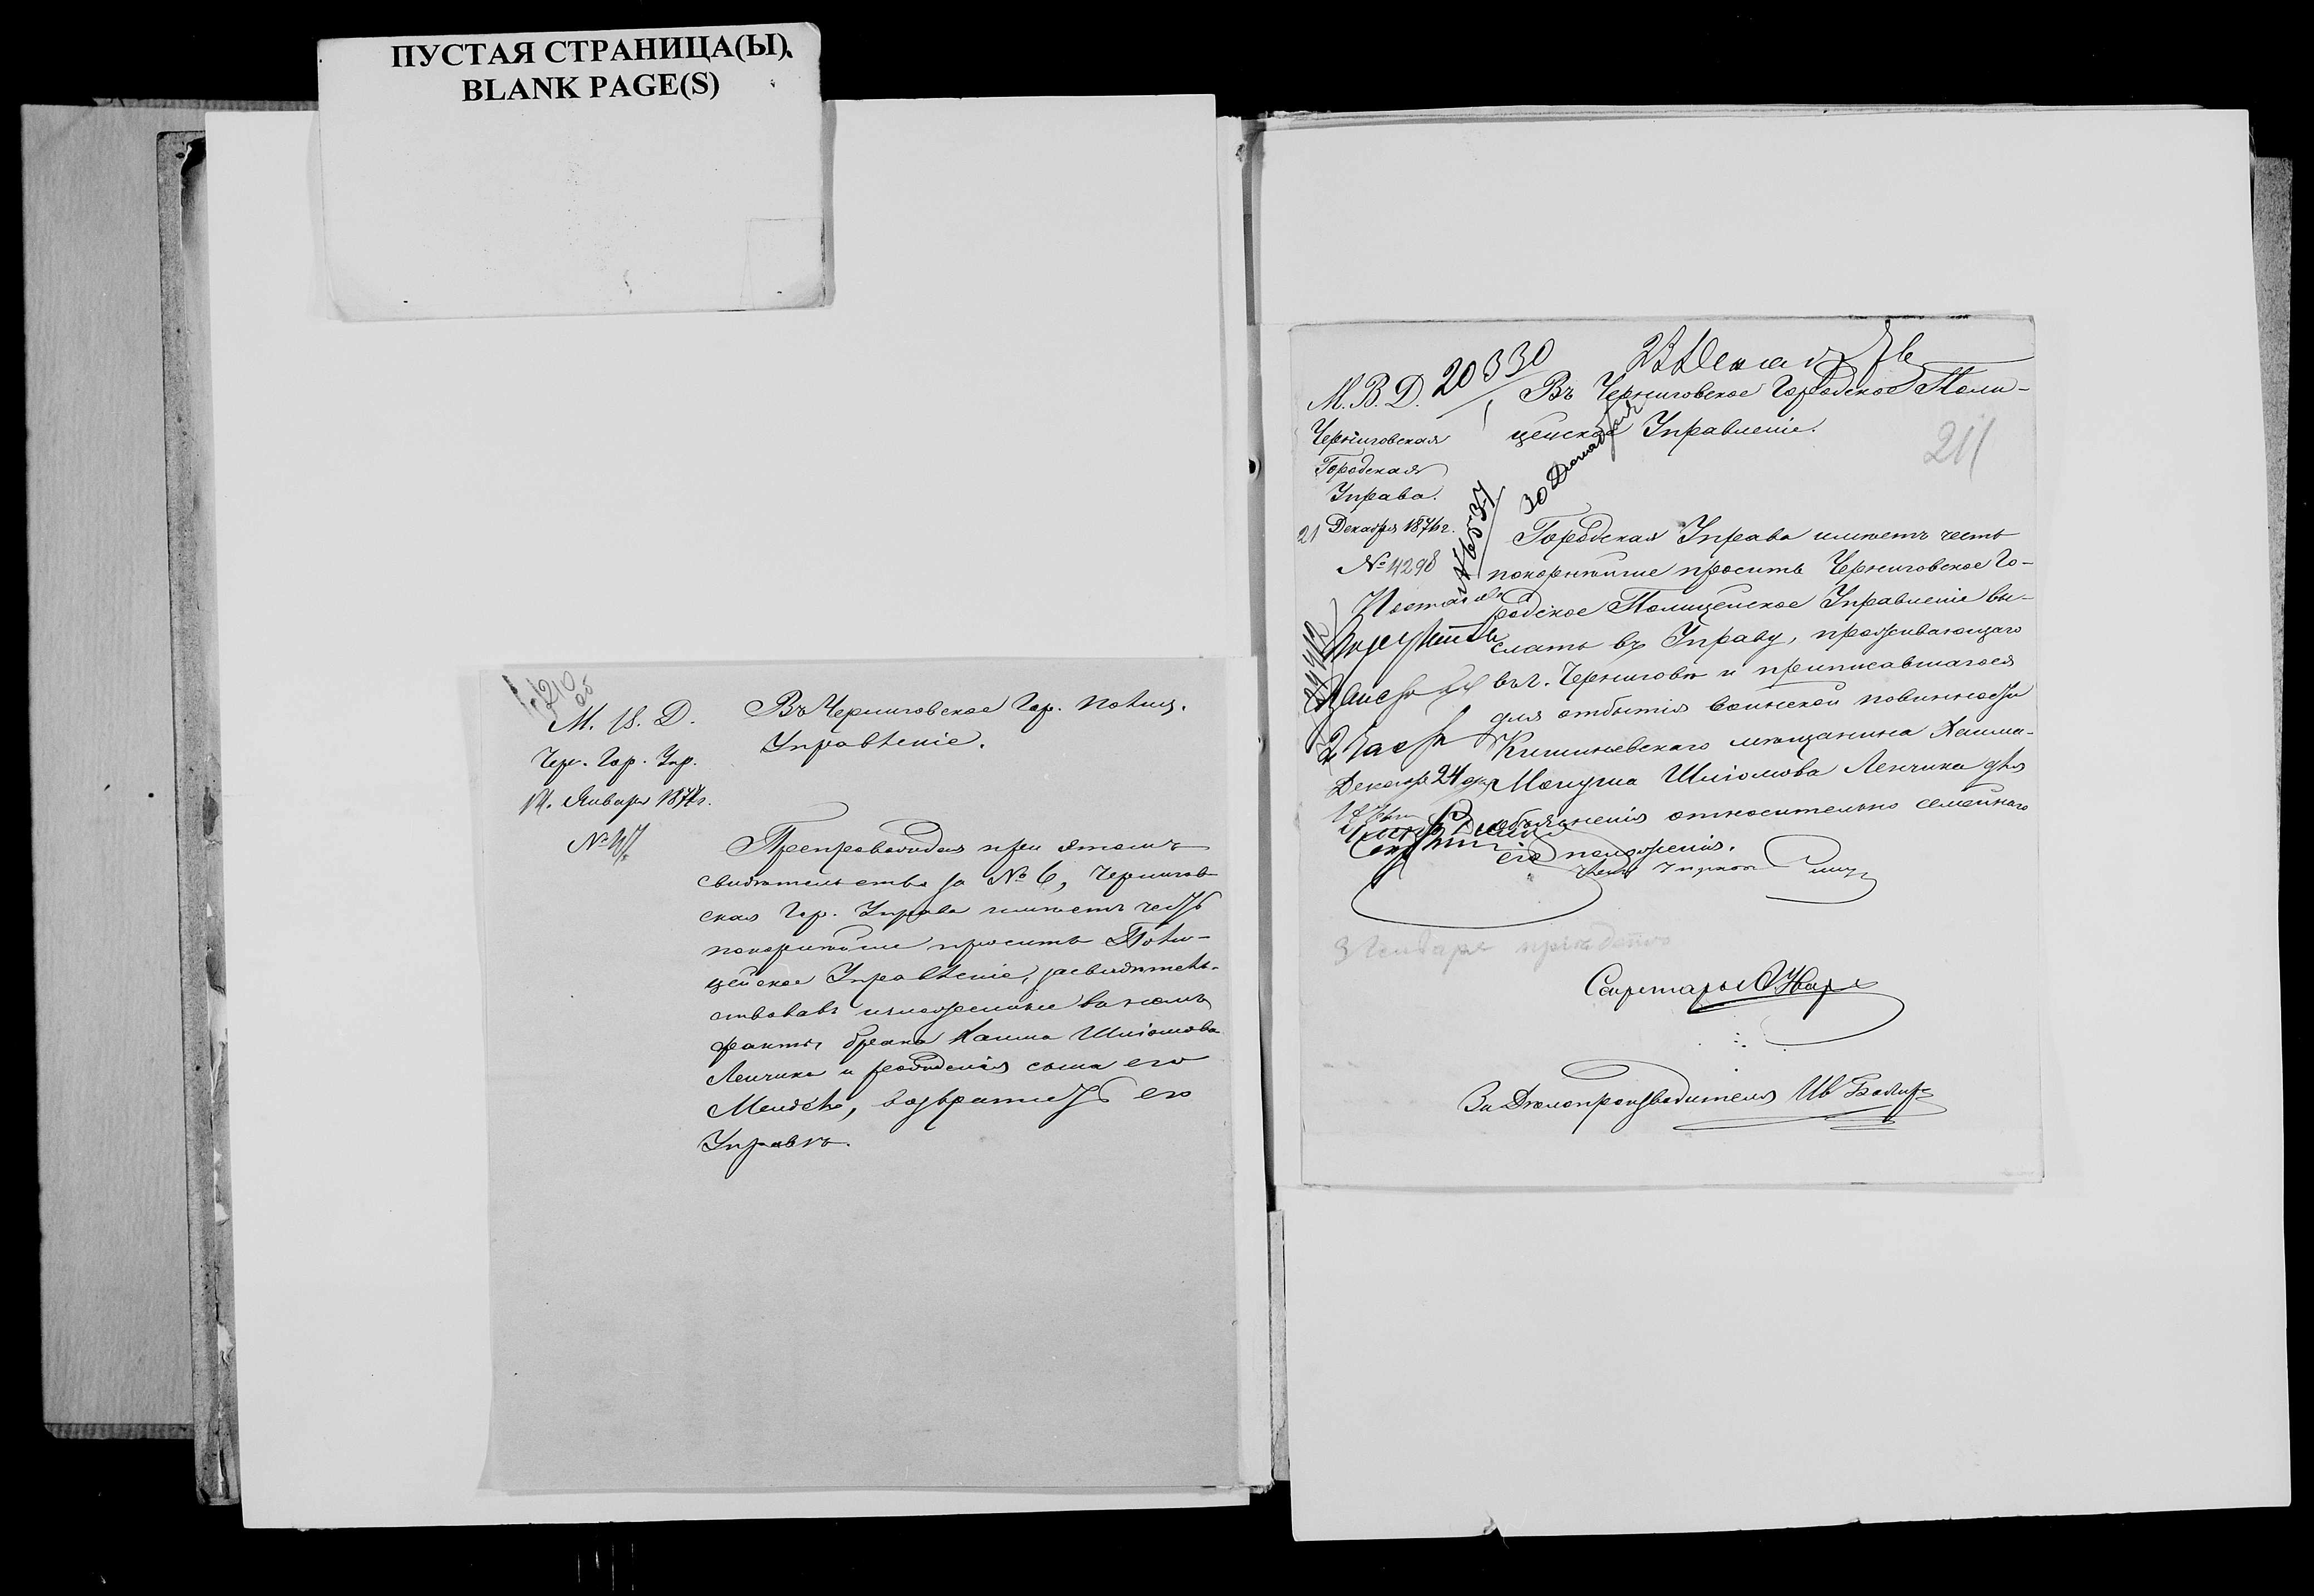 ПУСТАЯ СТРАНИЦА(Ы).
BLANK PAGE(S)
210
об
М. В. Д.
Чер. Гор. Упр.
14. Января 187
№
Въ Черниговское Гор. Полиц.
Управленіе.
Препровождая при этомъ
свидѣтельство за № 6, Чернигов
ская Гор. Управа имѣетъ честь
покорнѣйше просить Поли-
цейское Управленіе, засвидѣтель-
ствовавъ изложенные въ немъ
факты брака Хаима Шліомова
Ленчика и рожденія сына его
Менделя, возвратить его
Управѣ.
20330
М. В. Д.
Черниговская
Городская
Управа.
21 Декабря 1876 г.
№ 4298
Въ Черниговское Городское Поли-
цейское Управленіе.
211
30 Декабря
Городская Управа имѣетъ честь
покорнѣйше просить Черниговское Го-
родское Полицейское Управленіе вы-
слать въ Управу, проживающаго
въ г. Черниговѣ и приписавшагося
для отбытія воинской повинности
Кишиневскаго мѣщанина Хаима-
Мануша Шліомова Ленчика для
объясненія относительно семейнаго
его положенія.
2 части
Декабря 24 дня
Член Управы
3 Генваря
Секретарь
За Дѣлопроизводителя Ив